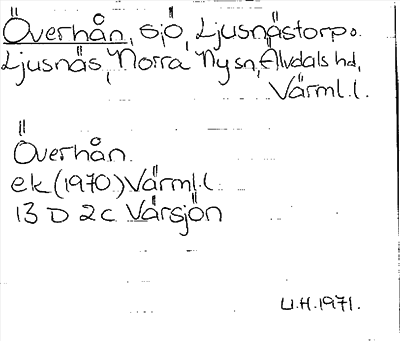 Överhån, sjö, Ljusnästorp o.
Ljusnäs, Norra Ny sn, Älvdals hd,
Värml. l.
Överhån
ek (1970) Värml. l.
13 D 2c Vårsjön
U.H. 1971.